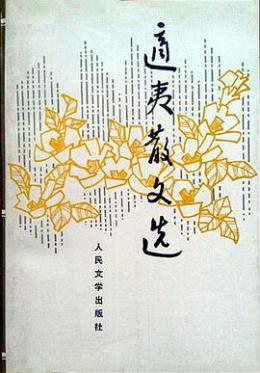 適夷散文选
人民文学出版社